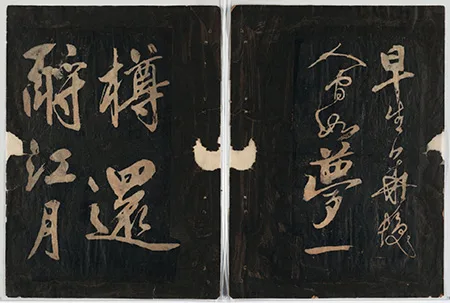 早生華髮
人間如夢一
樽還
酹江月